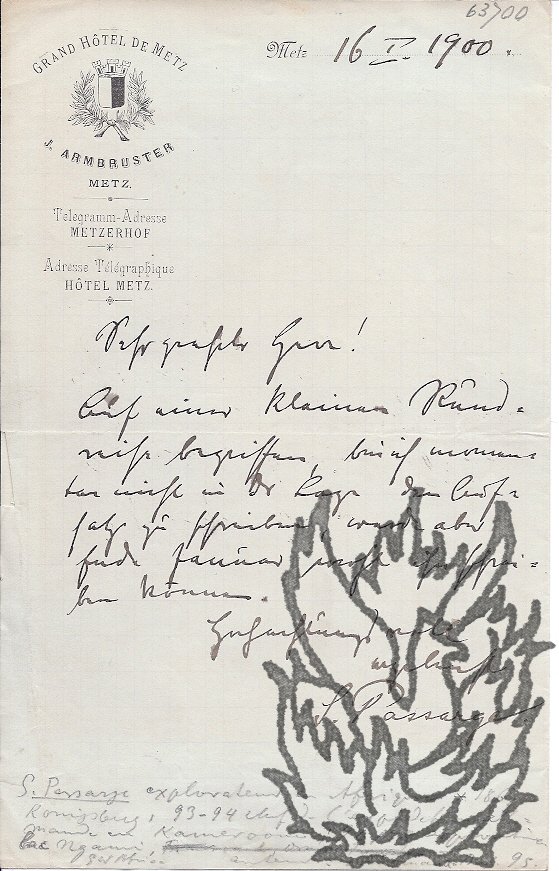 63700
GRAND HÔTEL DE METZ
J. ARMBRUSTER
METZ.
Telegramm-Adresse
METZERHOF
Adresse Télégraphique
HÔTEL METZ.
Metz 16 I. 1900.
Sehr geehrter Herr!
Auf einer kleinen Rund-
reise begriffen, bin ich momen-
tan nicht in der Lage den Auf-
satz zu schreiben, werde aber
Ende Januar wohl ihn schrei-
ben können.
Hochachtungsvoll
ergebenst
S. Passarge
S. Passarge explorateur Afrique
Königsberg, 93-94 chef de
Kameroun
Lac Ngami,
95.